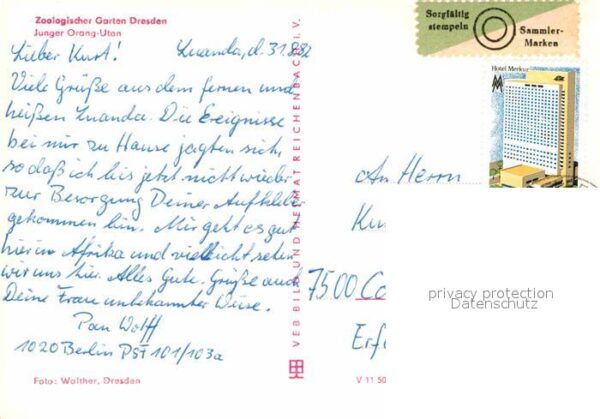 Zoologischer Garten Dresden
Junger Orang-Utan
Luanda, d. 31.8.82
Lieber Kurt!
Viele Grüße aus dem fernen und
heißen Luanda. Die Ereignisse
bei mir zu Hause jagten sich,
so daß ich bis jetzt nicht wieder
zur Besorgung Deiner Aufkleber
gekommen bin. Mir geht es gut
hier in Afrika und vielleicht sehen
wir uns hier. Alles Gute. Grüße auch
Deine Frau unbekannter Weise.
Wolff
1020 Berlin PSF 101/103a
Foto: Walther, Dresden
VEB BILD UND HEIMAT REICHENBACH I. V.
Sorgfältig
stempeln
Sammler-
Marken
Hotel Merkur
MM
An Herrn
Ku
7500 Co
Erf
V 11 50
privacy protection
Datenschutz